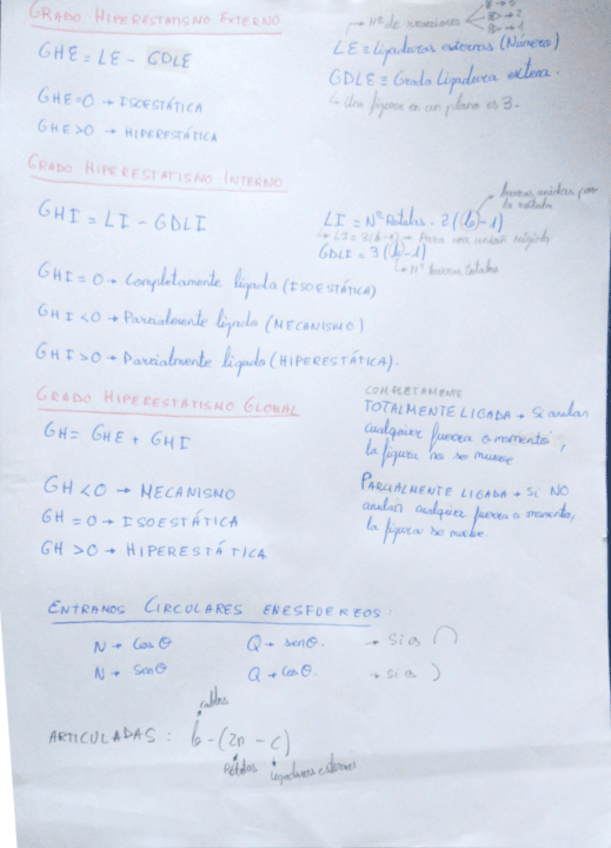 GRADO HIPERESTATISMO EXTERNO
→ Nº de reacciones
→ 2
→ 1
GHE = LE - GDLE
LE = Ligaduras externas (Número)
GDLE = Grado Ligadura externa.
↳ Una figura en un plano es 3.
GHE=0 → ISOESTÁTICA
GHE>0 → HIPERESTÁTICA
GRADO HIPERESTATISMO INTERNO
barras unidas por
la rótula
GHI = LI - GDLI
LI = Nº Rótulas · 2(b-1)
↳ LI = 3(b-1) → Para una unión rígida
GDLI = 3(b-1)
↳ Nº barras totales
GHI = 0 → Completamente ligada (ISOESTÁTICA)
GHI <0 → Parcialmente ligada (MECANISMO)
GHI >0 → Parcialmente ligado (HIPERESTÁTICA).
GRADO HIPERESTATISMO GLOBAL
GH = GHE + GHI
GH <0 → MECANISMO
GH = 0 → ISOESTÁTICA
GH >0 → HIPERESTÁTICA
COMPLETAMENTE
TOTALMENTE LIGADA → Si anulan
cualquier fuerza o momento,
la figura no se mueve
PARCIALMENTE LIGADA → Si NO
anulan cualquier fuerza o momento,
la figura se mueve.
ENTRAMOS CIRCULARES EN ESFUERZOS:
N → Cos θ Q → sen θ. → Si es ∩
N → Sen θ Q → Cos θ. → Si es )
ARTICULADAS: b - (2n - c)
Rótulas Ligaduras externas